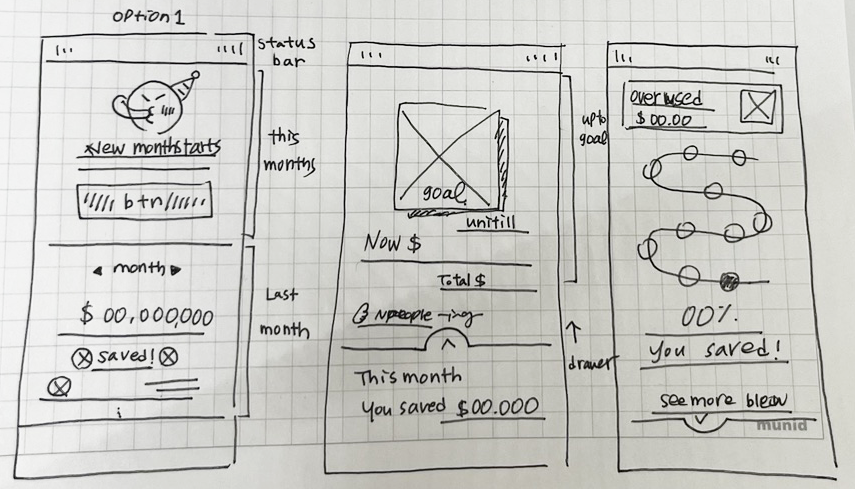 option 1
status bar
New month starts
btn
this months
◀ month ▶
$ 00,000,000
saved!
Last month
goal
unitill
Now $
Total $
up to goal
drawer
This month
You saved $00.000
over used
$ 00.00
00%.
You saved!
see more bleow
munid